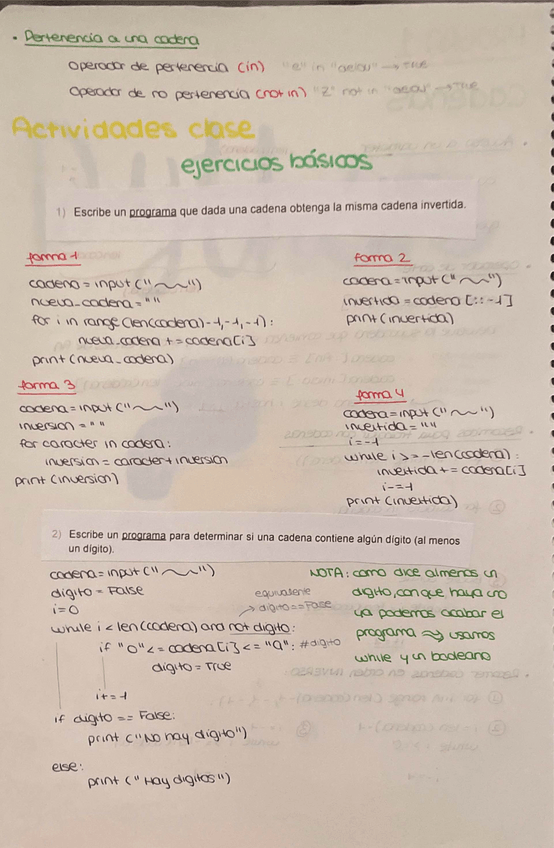 • Pertenencia a una cadena
Operador de pertenencia (in) "e" in "aeiou" → True
Operador de no pertenencia (not in) "z" not in "aeiou" → True
Actividades clase
ejercicios básicos
1) Escribe un programa que dada una cadena obtenga la misma cadena invertida.
forma 1
cadena = input("~~")
nueva_cadena = ""
for i in range (len(cadena)-1,-1,-1):
nueva_cadena += cadena[i]
print (nueva_cadena)
forma 2
cadena = input("~~")
invertido = cadena [::-1]
print (invertida)
forma 3
cadena = input("~~")
inversion = ""
for caracter in cadena:
inversion = caracter + inversion
print (inversion)
forma 4
cadena = input("~~")
invertida = ""
i=-1
while i >= -len(cadena):
invertida += cadena[i]
i-=1
print (invertida)
2) Escribe un programa para determinar si una cadena contiene algún dígito (al menos
un dígito).
cadena = input("~~")
digito = False
i=0
while i < len(cadena) and not digito:
equivalente
→ digito == False
if "0" <= cadena[i] <= "9": #digito
digito = True
i+=1
if digito == False:
print ("No hay digito")
else:
print ("Hay digitos")
NOTA: como dice almenos un
digito, con que haya uno
ya podemos acabar el
programa ⇝ usamos
while y un booleano